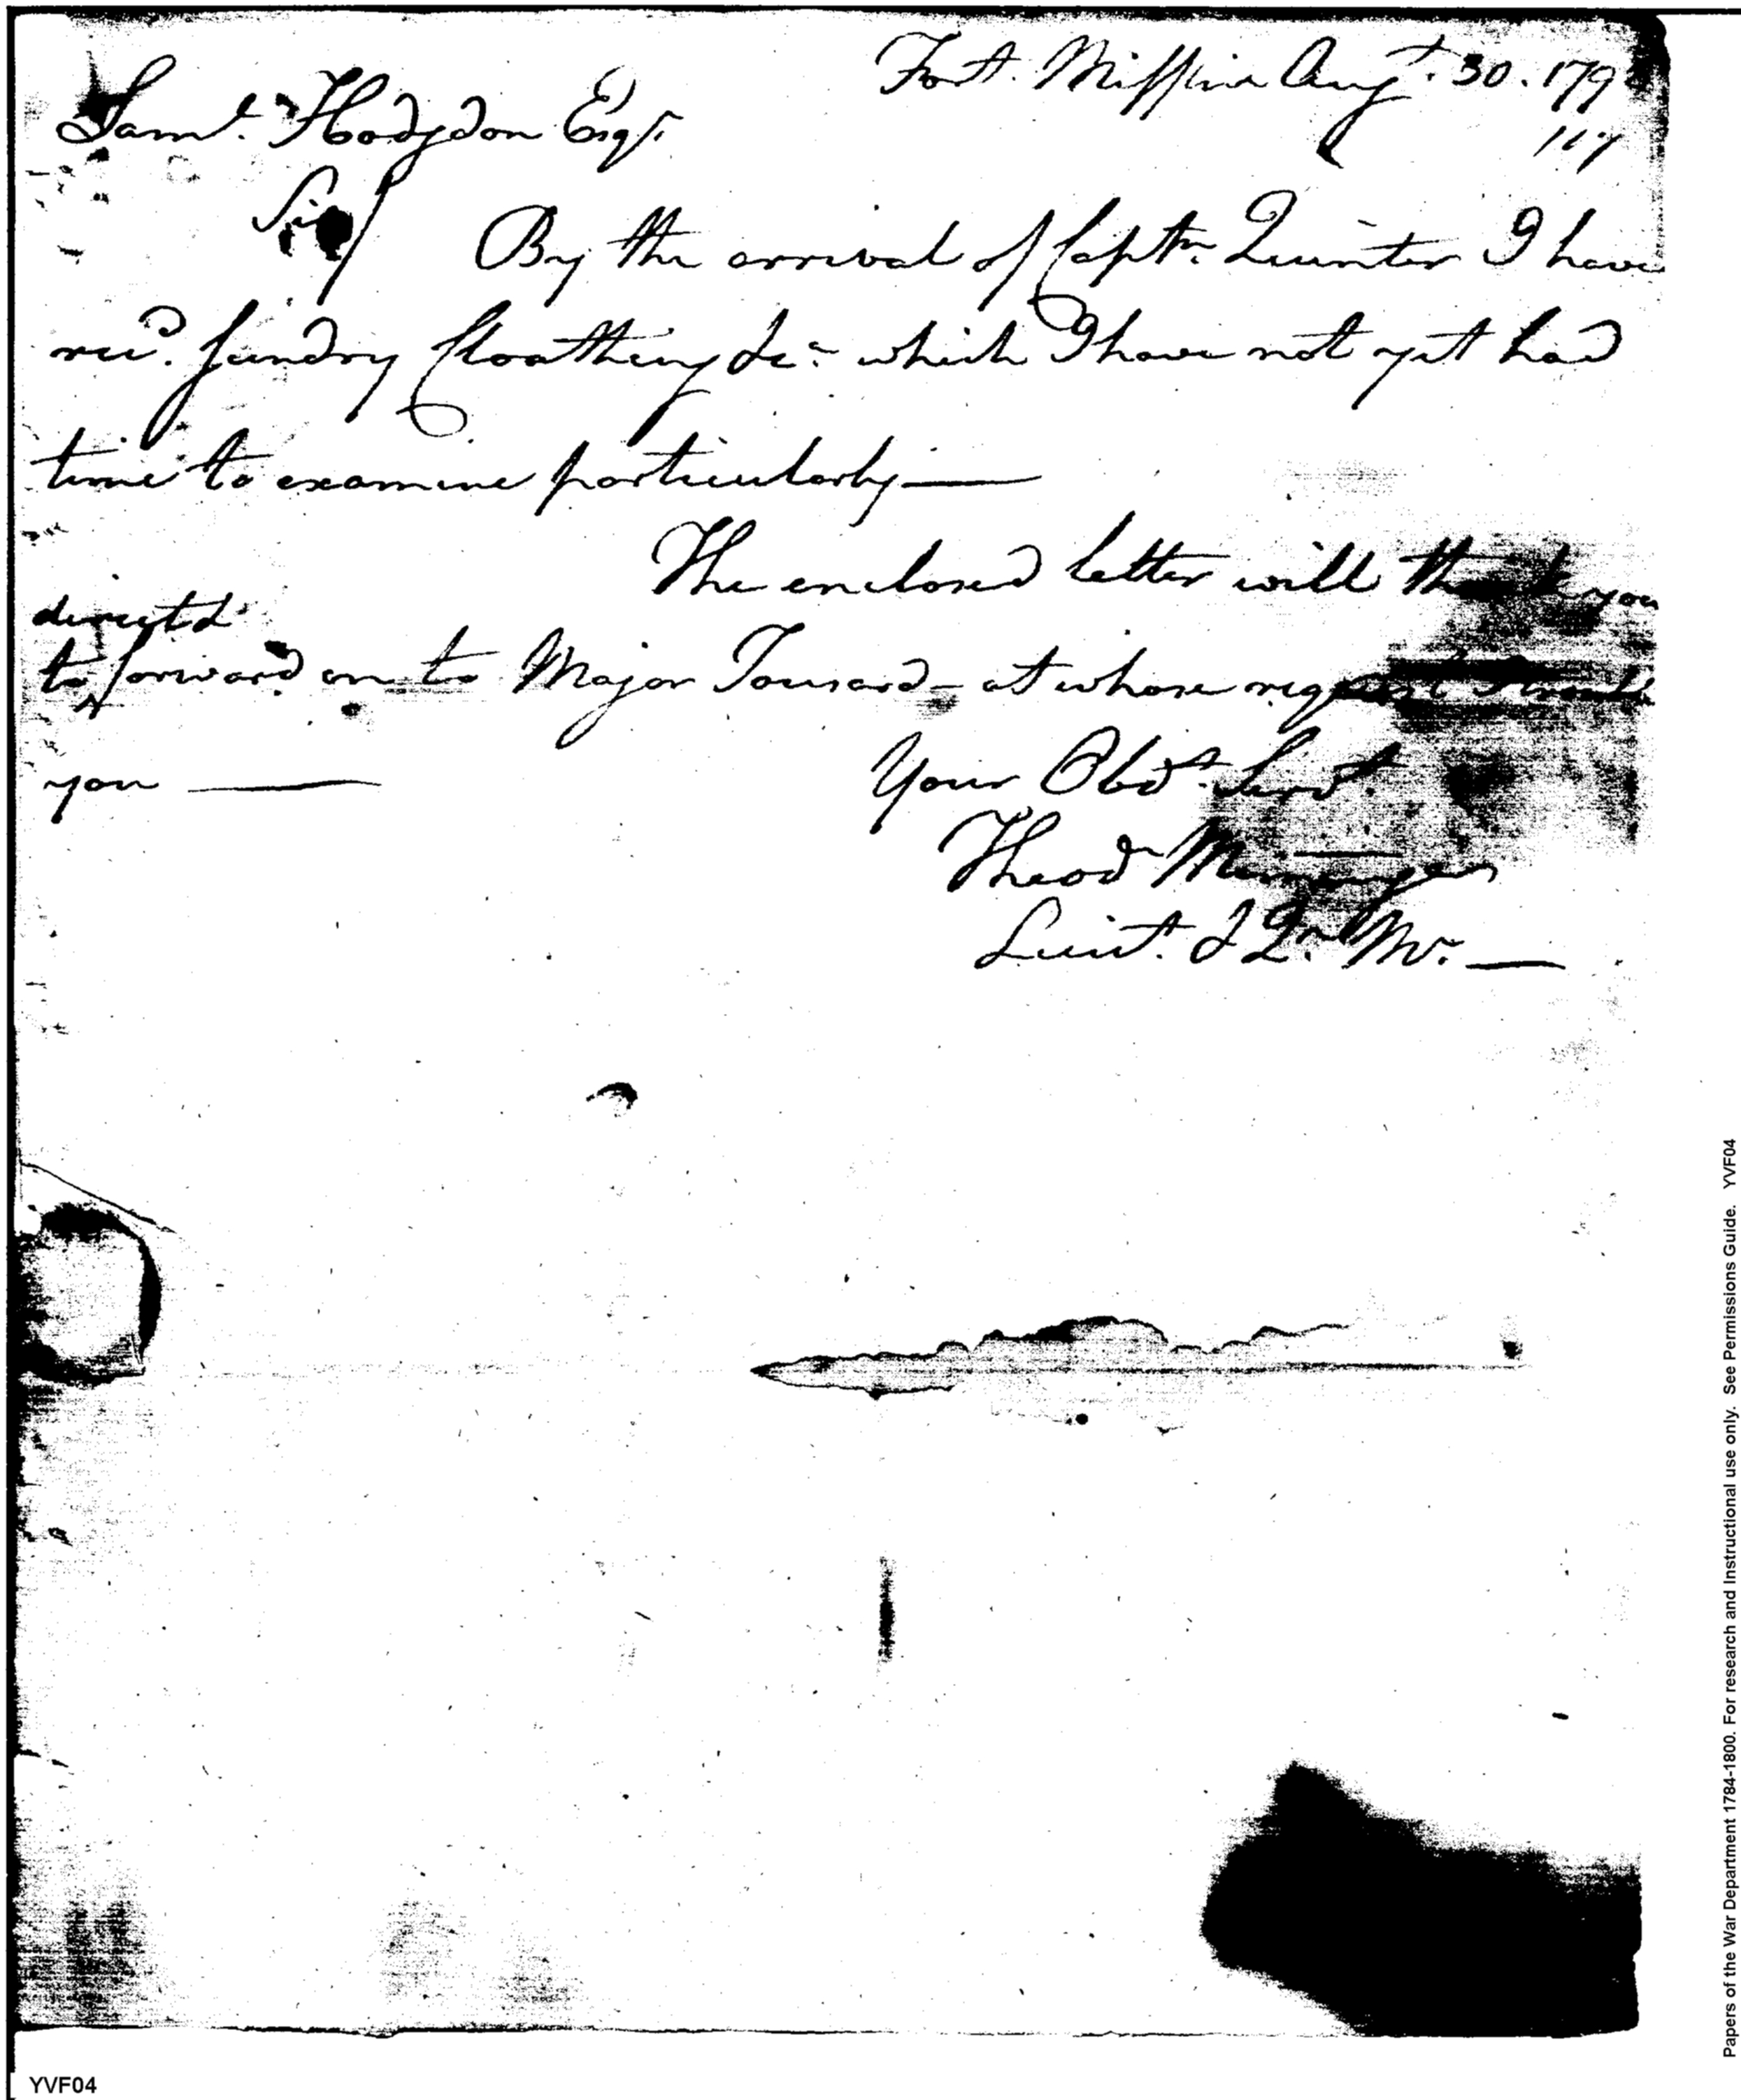 Fort. Mifflin Augt. 30. 179
117
Saml. Hodgdon Esqr.
Sir/
By the arrival of Captn. Quinter I have
recd. Sundry Cloathing &c. which I have not yet had
time to examine particularly—
The enclosed letter will thank you
directd
to forward on to Major Tousard— at whose request I trouble
you —
Your Obdt. Servt.
Theod Memminger
Lieut. & Qr. Mr. —
Papers of the War Department 1784-1800. For research and Instructional use only. See Permissions Guide. YVF04
YVF04